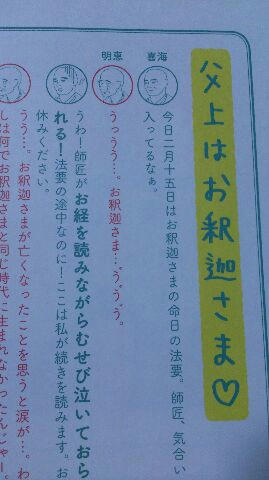 父上はお釈迦さま♡
喜海
今日二月十五日はお釈迦さまの命日の法要。師匠、気合い
入ってるなぁ。
明恵
うっうう…。お釈迦さま…う、う、う。
うわ！師匠がお経を読みながらむせび泣いておら
れる！法要の途中なのに！ここは私が続きを読みます。お
休みください。
うう…。お釈迦さまが亡くなったことを思うと涙が…。わ
しは何でお釈迦さまと同じ時代に生まれなかったんじゃー。